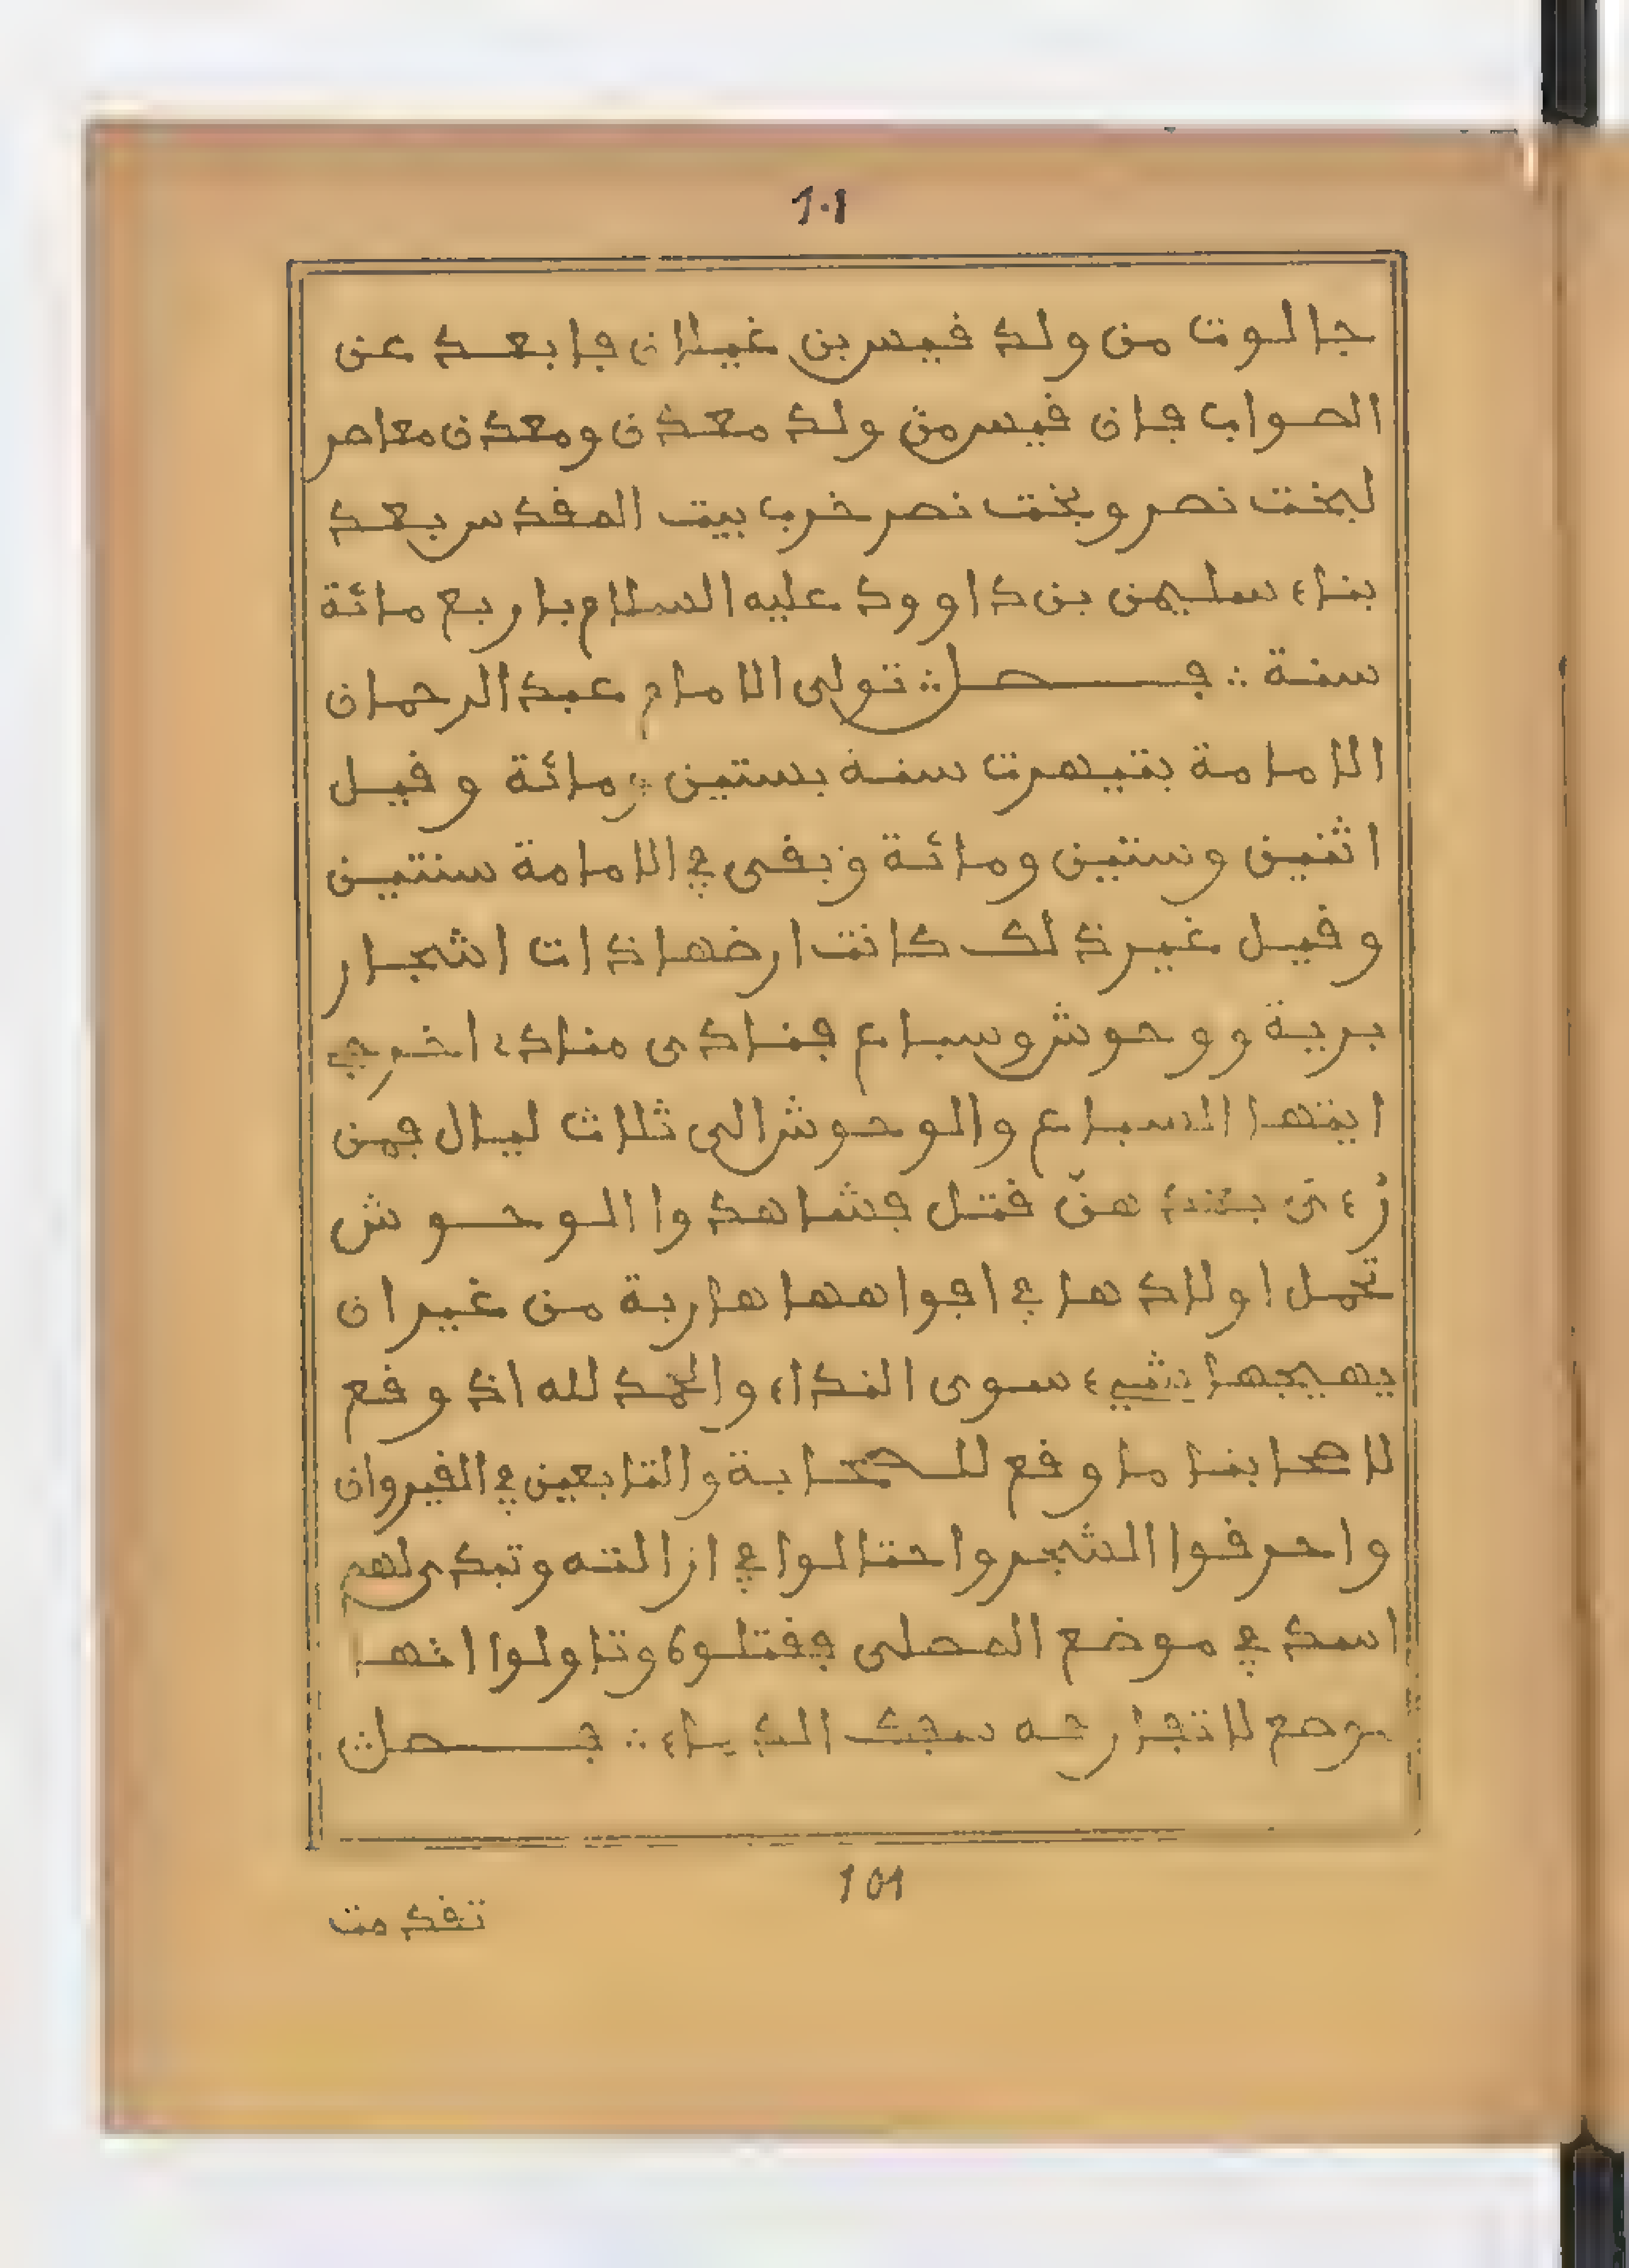 1.1
جالوت من ولد قيس بن غيلان فابعد عن
الصواب فان قيس من ولد معدن ومعدن معاصر
لبخت نصر وبخت نصر خرب بيت المقدس بعد
بناء سليمن بن داوود عليه السلام باربع مائة
سنة ∴ فصل ∴ تولى الامام عبد الرحمان
الامامة بتيهرت سنة بستين ومائة وقيل
اثنين وستين ومائة وبقى في الامامة سنتين
وقيل غير ذلك كانت ارضها ذات اشجار
برية ووحوش وسباع فنادى مناد اخرجي
ايتها السباع والوحوش الى ثلاث ليال فمن
قتل فشاهدوا الوحوش
تحمل اولادها في افواهها هاربة من غير ان
يهيجها شيء سوى النداء والحمد لله اذ وقع
لاصحابنا ما وقع للصحابة والتابعين في القيروان
واحرقوا الشجر واحتالوا في ازالته وتبدى لهم
اسد في موضع المصلى فقتلوه وتاولوا انها
موضع لا تفارقه سفك الدماء ∴ فصل
101
تقدمت